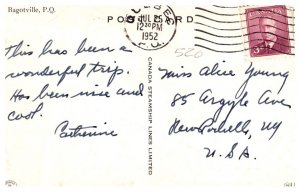 Bagotville, P.Q.
POST CARD
QUEBEC
JUL 25
12 30 PM
1952
P.Q.
520
3
this has been a
wonderful trip.
Has been nice and
cool.
Catherine
CANADA STEAMSHIP LINES LIMITED
Miss Alice Young
85 Argyle Ave
New Rochelle, NY
U.S.A.